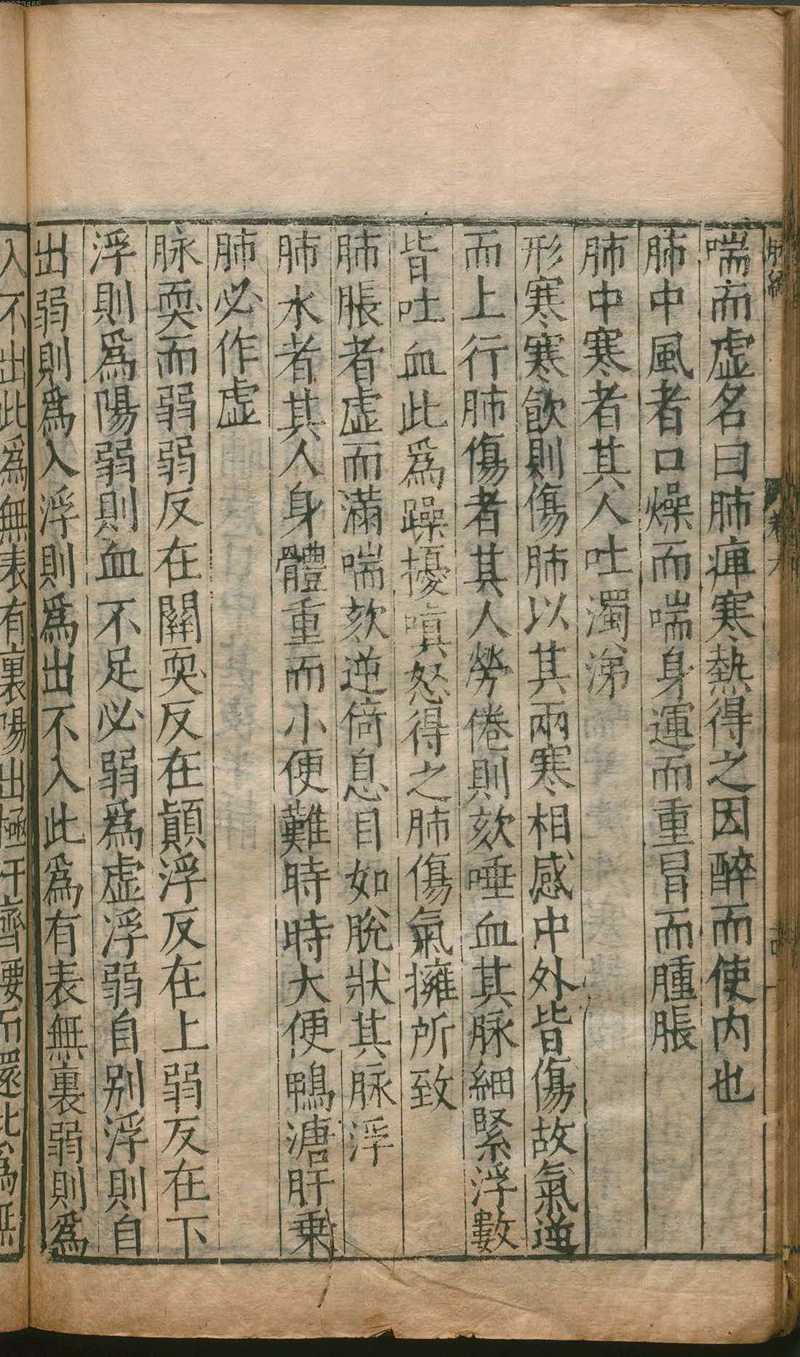 喘而虚名曰肺痺寒熱得之因醉而使内也
肺中風者口燥而喘身運而重冒而腫脹
肺中寒者其人吐濁涕
形寒寒飲則傷肺以其兩寒相感中外皆傷故氣逆
而上行肺傷者其人勞倦則欬唾血其脉細緊浮數
皆吐血此爲躁擾嗔怒得之肺傷氣擁所致
肺脹者虚而滿喘欬逆倚息目如脫狀其脉浮
肺水者其人身體重而小便難時時大便鴨溏肝乗
肺必作虚
脉耎而弱弱反在關耎反在顚浮反在上弱反在下
浮則爲陽弱則血不足必弱爲虚浮弱自别浮則自
出弱則爲入浮則爲出不入此爲有表無裏弱則爲
入不出此爲無表有裏陽出極汗齊腰而還此爲無